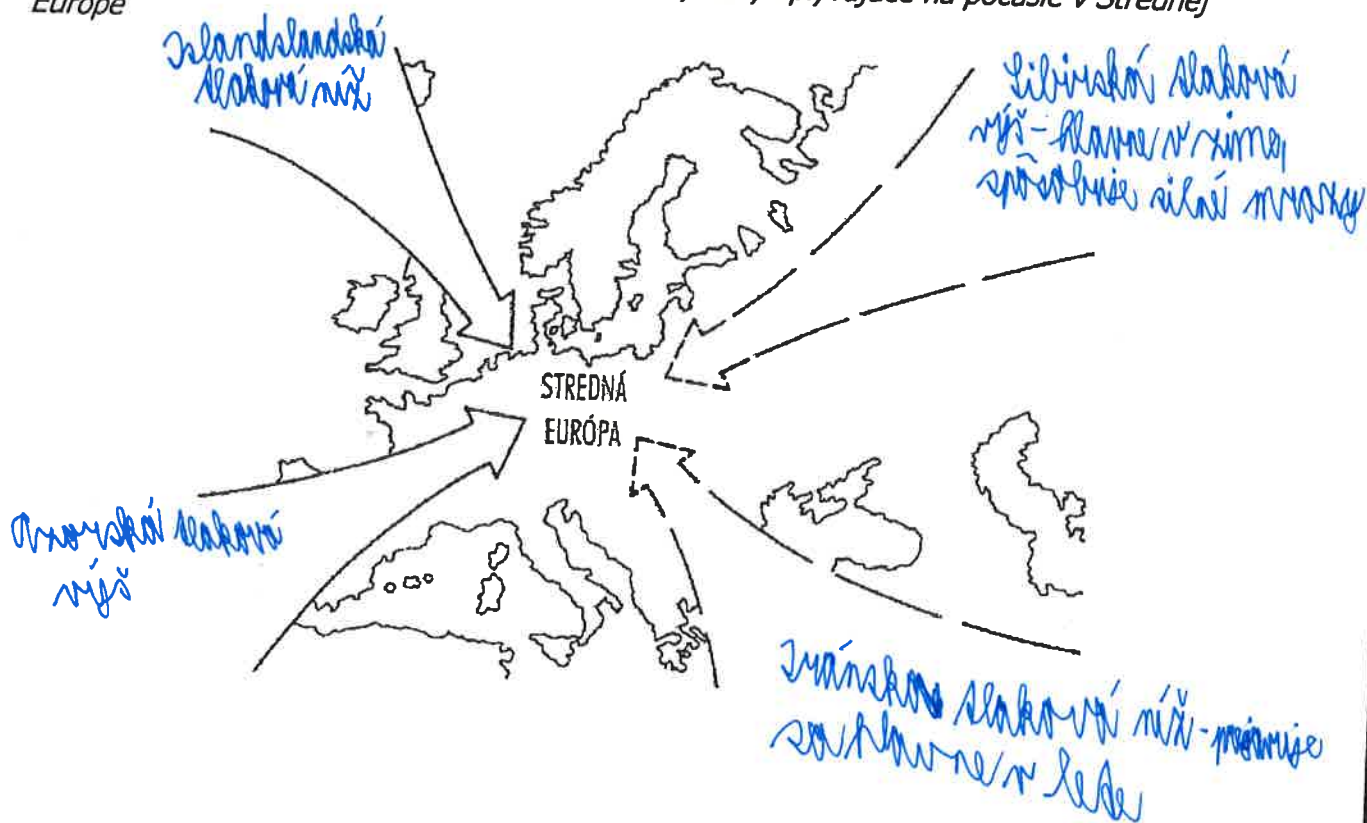 vplyvajúce na počasie v Strednej
Európe
Islandslandská
tlaková níž
Sibirská tlaková
výš - hlavne v zime,
spôsobuje silné mrazy
STREDNÁ
EURÓPA
Azorská tlaková
výš
Iránska tlaková níž - prejavuje
sa hlavne v lete